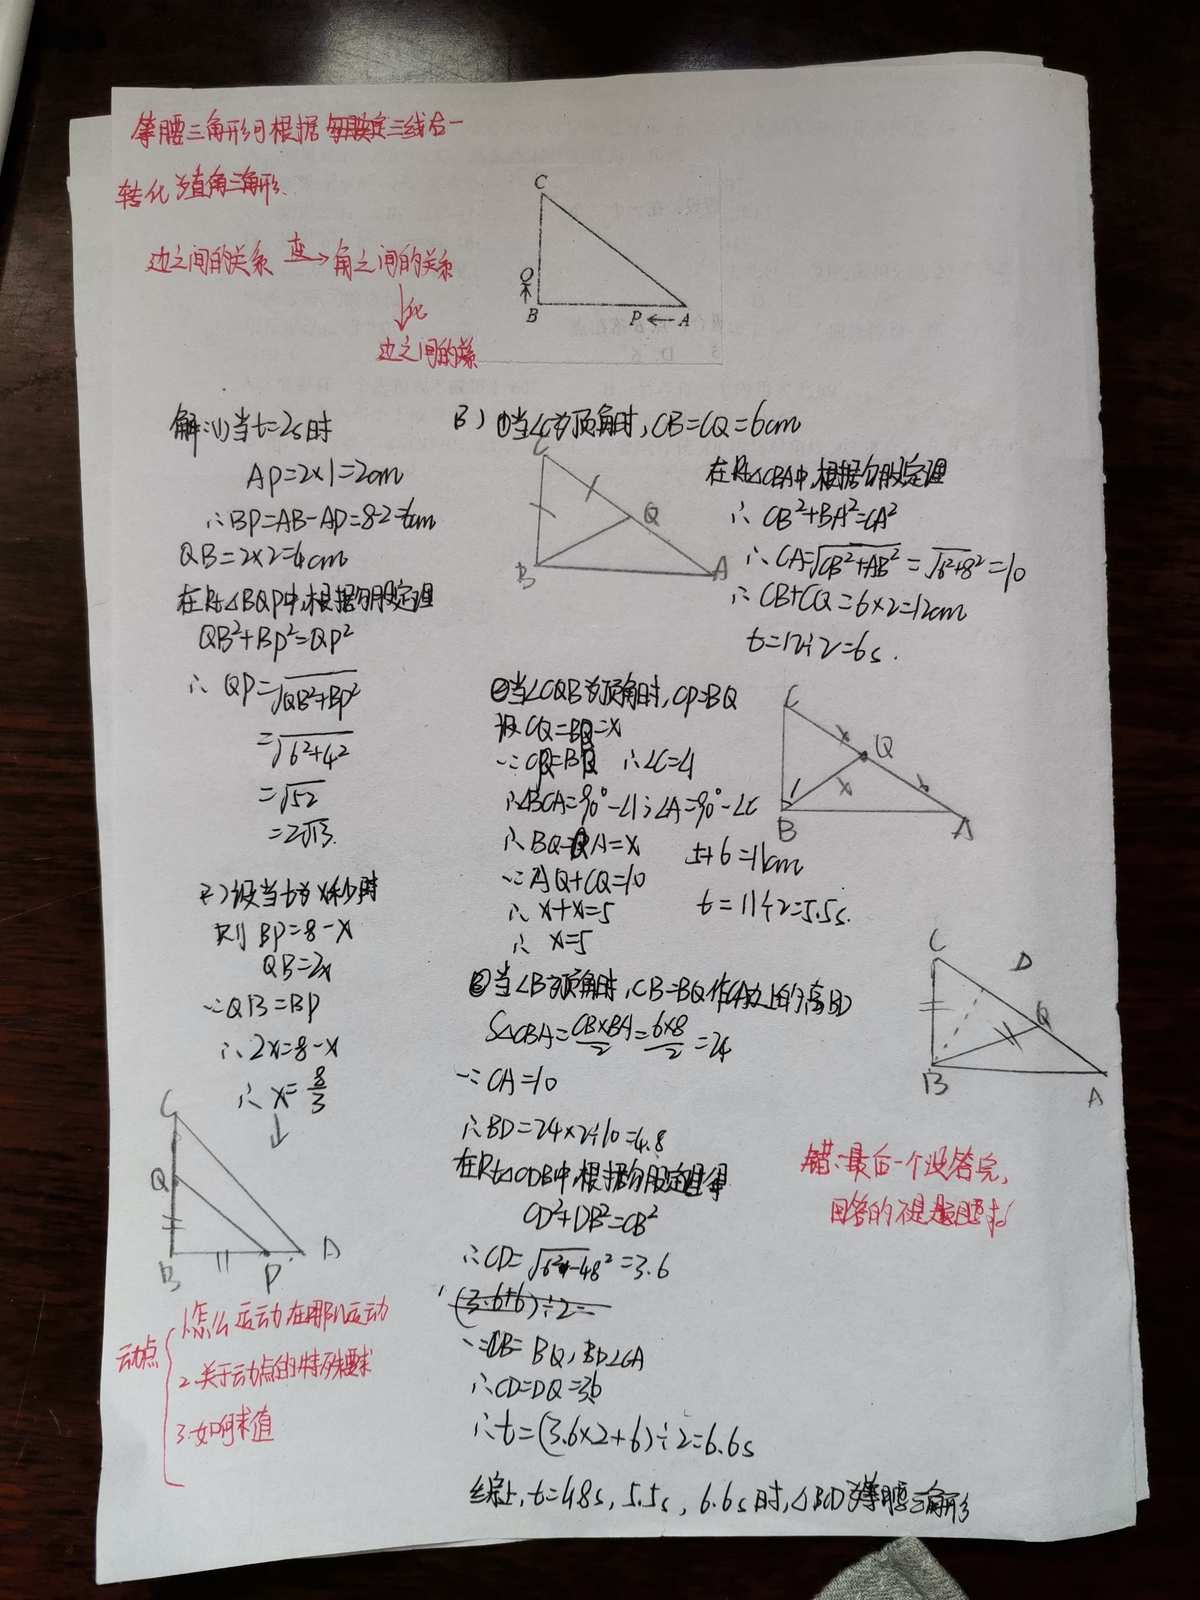 等腰三角形可根据勾股定三线合一
转化为直角三角形.
边之间的关系 变→ 角之间的关系
↓化
边之间的关系
C
Q
B P ← A
解:(1)当t=2s时
AP=2×1=2cm
∴BP=AB-AP=8-2=6cm
QB=2×2=4cm
在Rt△BQP中,根据勾股定理
QB²+BP²=QP²
∴ QP=√QB²+BP²
=√6²+4²
=√52
=2√13.
2)设当t为x秒时
则 BP=8-x
QB=2x
∵QB=BP
∴2x=8-x
∴x=8/3
C
Q
B P A
动点
1.怎么运动在哪儿运动
2.关于动点的特殊要求
3.如何求值
3) ①当∠C为顶角时,CB=CQ=6cm
C
Q
B A
在Rt△CBA中,根据勾股定理
∴ CB²+BA²=CA²
∴ CA=√CB²+AB² = √6²+8² =10
∴ CB+CQ=6×2=12cm
t=12÷2=6s.
②当∠CQB为顶角时,CP=BQ
设CQ=BQ=x
∵CQ=BQ ∴∠C=∠1
∴∠BCA=90°-∠1;∠A=90°-∠C
∴BQ=QA=x
∵AQ+CQ=10
∴ x+x=5
∴ x=5
5+6=11cm
t=11÷2=5.5s.
C
x Q
x x
1
B A
③当∠B为顶角时,CB=BQ作CA边上的高BD
S△CBA=CB×BA/2=6×8/2=24
∵CA=10
∴BD=24×2÷10=4.8
在Rt△CDB中,根据勾股定理得
CD²+DB²=CB²
∴CD=√6²-4.8²=3.6
(3.6+6)÷2=
∵CB=BQ,BD⊥CA
∴CD=DQ=3.6
∴t=(3.6×2+6)÷2=6.6s
综上,t=4.8s,5.5s,6.6s时,△BCD为等腰三角形
C
D
Q
B A
错:最后一个没答完,
回答的不是题目要求